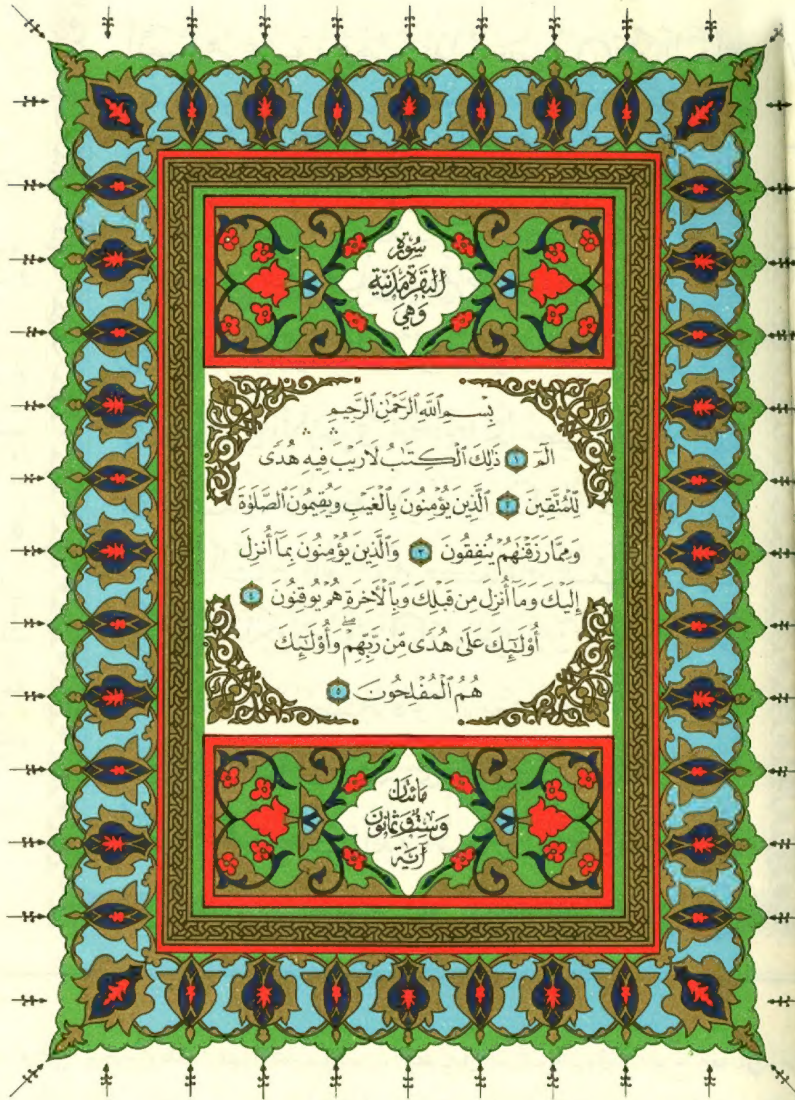 سُورَةُ
الْبَقَرَةِ مَدَنِيَّة
وَهِيَ
بِسْمِ ٱللَّهِ ٱلرَّحْمَٰنِ ٱلرَّحِيمِ
الٓمٓ ١ ذَٰلِكَ ٱلْكِتَٰبُ لَا رَيْبَ ۛ فِيهِ ۛ هُدًى
لِّلْمُتَّقِينَ ٢ ٱلَّذِينَ يُؤْمِنُونَ بِٱلْغَيْبِ وَيُقِيمُونَ ٱلصَّلَوٰةَ
وَمِمَّا رَزَقْنَٰهُمْ يُنفِقُونَ ٣ وَٱلَّذِينَ يُؤْمِنُونَ بِمَآ أُنزِلَ
إِلَيْكَ وَمَآ أُنزِلَ مِن قَبْلِكَ وَبِٱلْأٓخِرَةِ هُمْ يُوقِنُونَ ٤
أُو۟لَٰٓئِكَ عَلَىٰ هُدًى مِّن رَّبِّهِمْ ۖ وَأُو۟لَٰٓئِكَ
هُمُ ٱلْمُفْلِحُونَ ٥
مَائتَان
وَسِتّ وَثمَانُون
آيَة